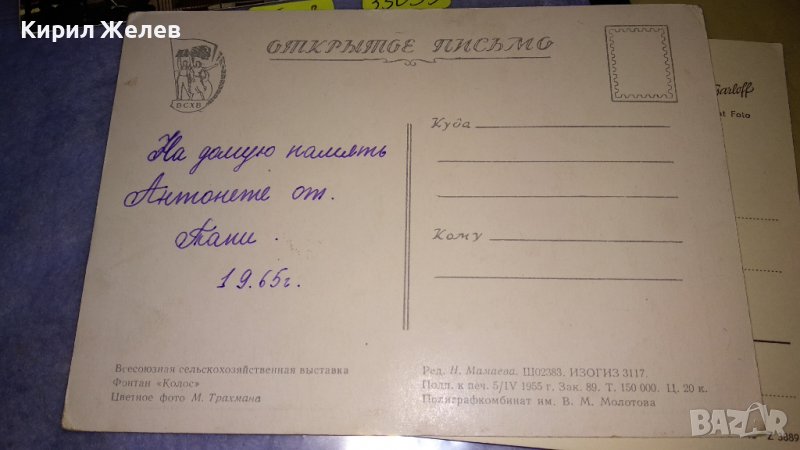 Кирил Желев
33055
ОТКРЫТОЕ ПИСЬМО
ВСХВ
На домую память
Антонете от.
Тани.
1965г.
Куда
Кому
Всесоюзная сельскохозяйственная выставка
Фонтан «Колос»
Цветное фото М. Трахмана
Ред. Н. Мамаева. Ш02383. ИЗОГИЗ 3117.
Подп. к печ. 5/IV 1955 г. Зак. 89. Т. 150 000. Ц. 20 к.
Полиграфкомбинат им. В. М. Молотова
Garloff
Foto
3889
BAZAR
bg